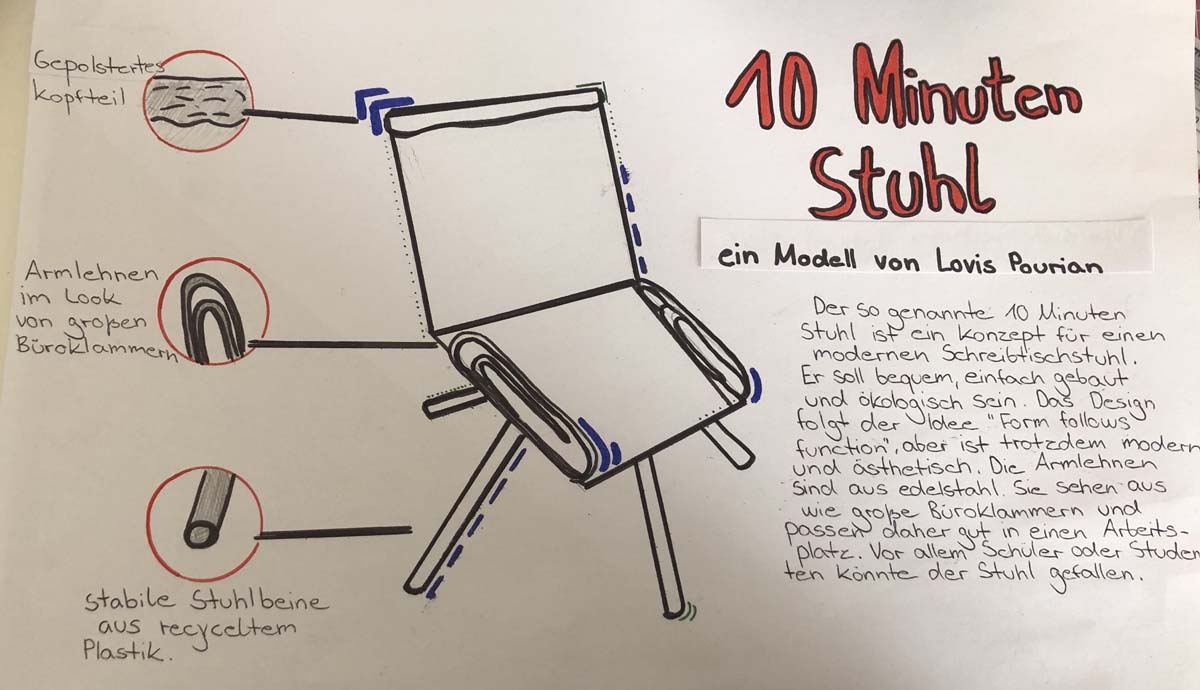 10 Minuten
Stuhl
ein Modell von Lovis Pourian
Gepolstertes
Kopfteil
Armlehnen
im Look
von großen
Büroklammern
stabile Stuhlbeine
aus recyceltem
Plastik.
Der so genannte 10 Minuten
Stuhl ist ein Konzept für einen
modernen Schreibtischstuhl.
Er soll bequem, einfach gebaut
und ökologisch sein. Das Design
folgt der Idee "Form follows
function", aber ist trotzdem modern
und ästhetisch. Die Armlehnen
sind aus edelstahl. Sie sehen aus
wie große Büroklammern und
passen daher gut in einen Arbeits-
platz. Vor allem Schüler oder Studen
ten könnte der Stuhl gefallen.